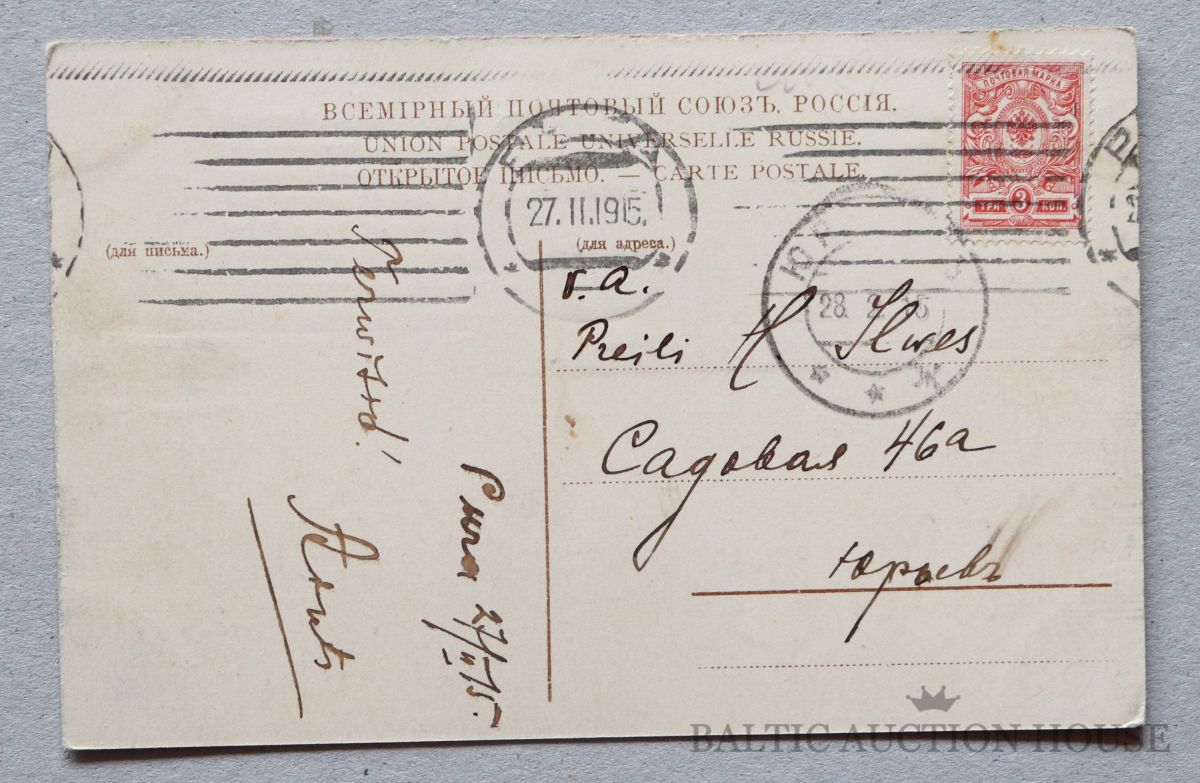 ВСЕМІРНЫЙ ПОЧТОВЫЙ СОЮЗЪ. РОССІЯ.
UNION POSTALE UNIVERSELLE RUSSIE.
ОТКРЫТОЕ ПИСЬМО. — CARTE POSTALE.
(для письма.)
(для адреса.)
ПОЧТОВАЯ МАРКА
3
ТРИ КОП.
27.II.1915.
28. 2. 15
v. a.
Preili H Ilwes
Садовая 46a
Юрьевъ
Terwitan!
Рига 27/II 15.
BALTIC AUCTION HOUSE